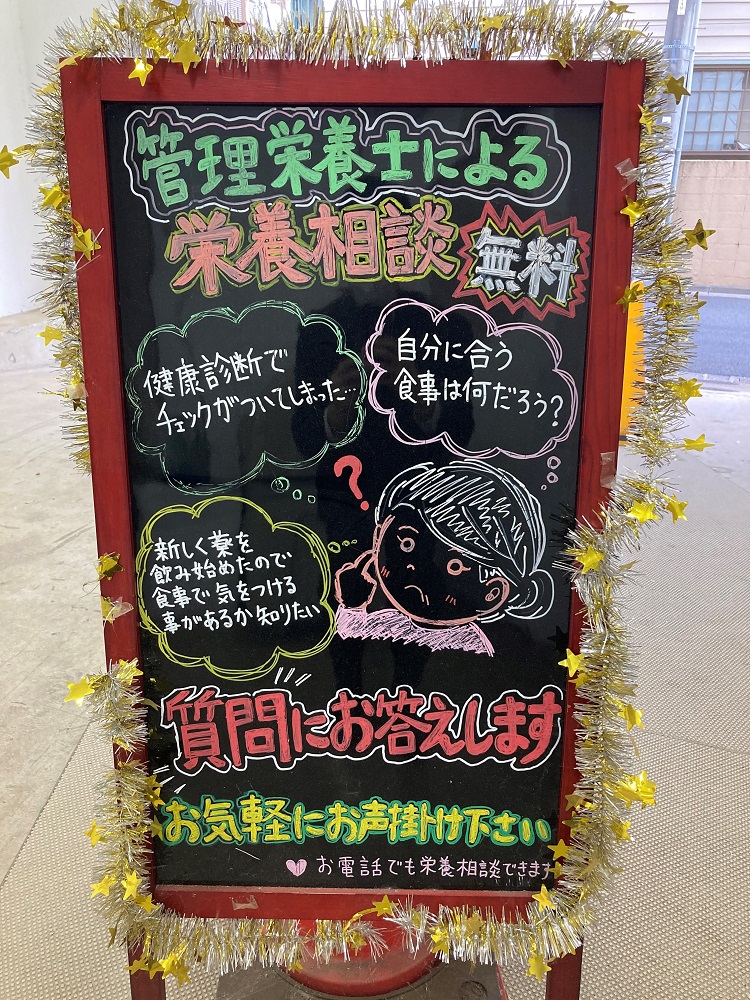 管理栄養士による
栄養相談
無料
健康診断で
チェックがついてしまった…
自分に合う
食事は何だろう?
?
新しく薬を
飲み始めたので
食事で気をつける
事があるか知りたい
質問にお答えします
お気軽にお声掛け下さい
♥ お電話でも栄養相談できます